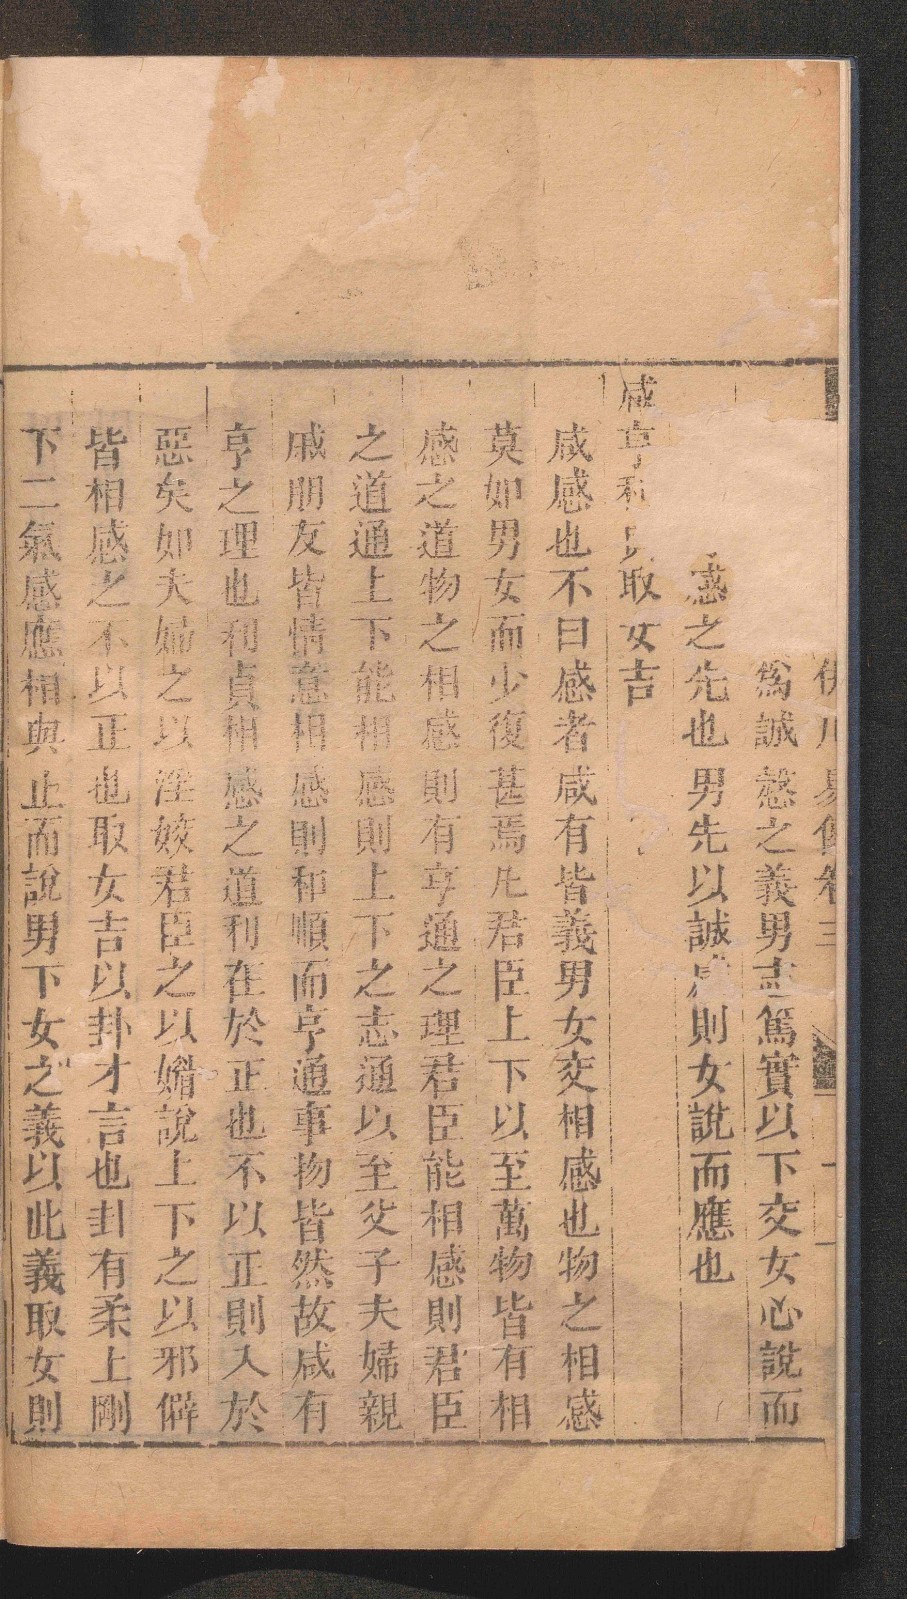 伊川易傳卷三
爲誠慤之義男志篤實以下交女心說而
感之先也男先以誠感則女說而應也
咸亨利貞取女吉
咸感也不曰感者咸有皆義男女交相感也物之相感
莫如男女而少復甚焉凡君臣上下以至萬物皆有相
感之道物之相感則有亨通之理君臣能相感則君臣
之道通上下能相感則上下之志通以至父子夫婦親
戚朋友皆情意相感則和順而亨通事物皆然故咸有
亨之理也利貞相感之道利在於正也不以正則入於
惡矣如夫婦之以淫姣君臣之以媚說上下之以邪僻
皆相感之不以正也取女吉以卦才言也卦有柔上剛
下二氣感應相與止而說男下女之義以此義取女則